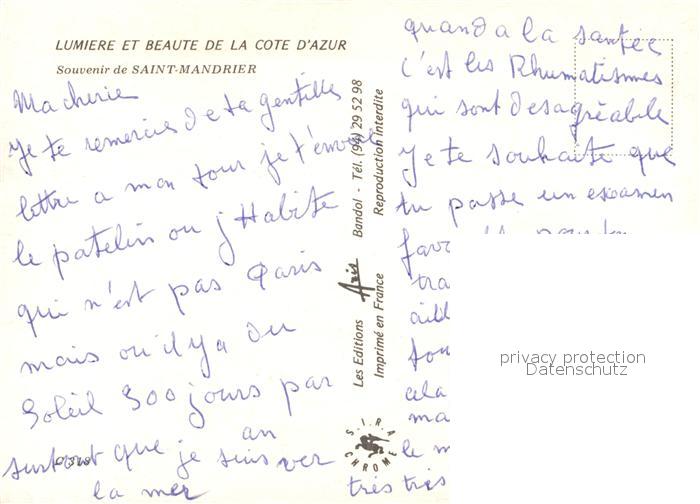 LUMIERE ET BEAUTE DE LA COTE D'AZUR
Souvenir de SAINT-MANDRIER
Ma cherie
Je te remercie de ta gentille
lettre a mon tour je t'envoie
le patelin ou j Habite
qui n'est pas Paris
mais ou il y a du
Soleil 300 jours par
an
surtout que je suis ver
la mer
Les Editions Azis Bandol - Tél. (94) 29 52 98
Imprimé en France Reproduction interdite
S.I.R.A.
CHROME
quand a la santée
c'est les Rhumatismes
qui sont desagréabile
Je te souhaite que
tu passe un examen
tra
cela
ma
le m
très très
privacy protection
Datenschutz